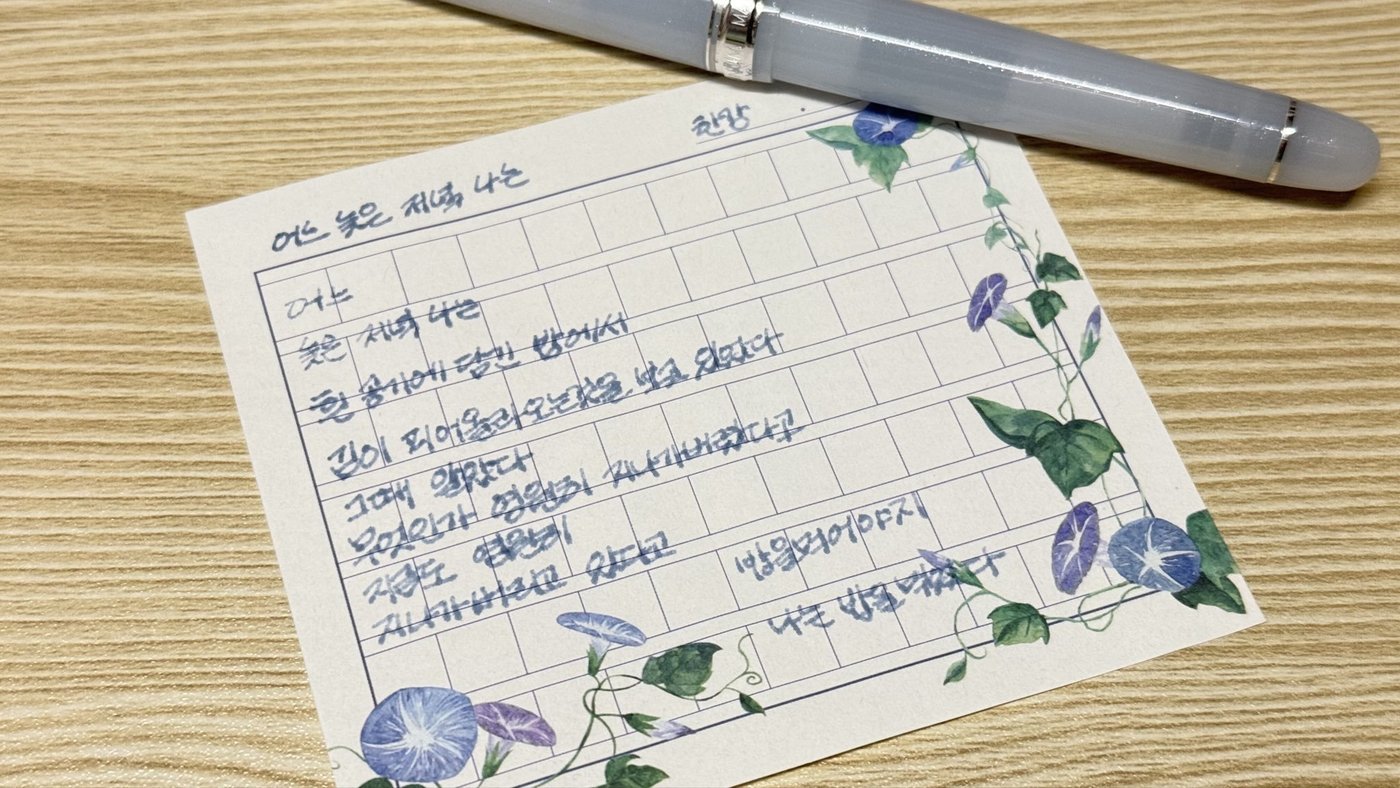 어느 늦은 저녁 나는
한강
어느
늦은 저녁 나는
흰 공기에 담긴 밥에서
김이 피어올라 오는것을 보고 있었다
그때 알았다
무엇인가 영원히 지나가버렸다고
지금도 영원히
지나가버리고 있다고
밥을먹어야지
나는 밥을먹었다